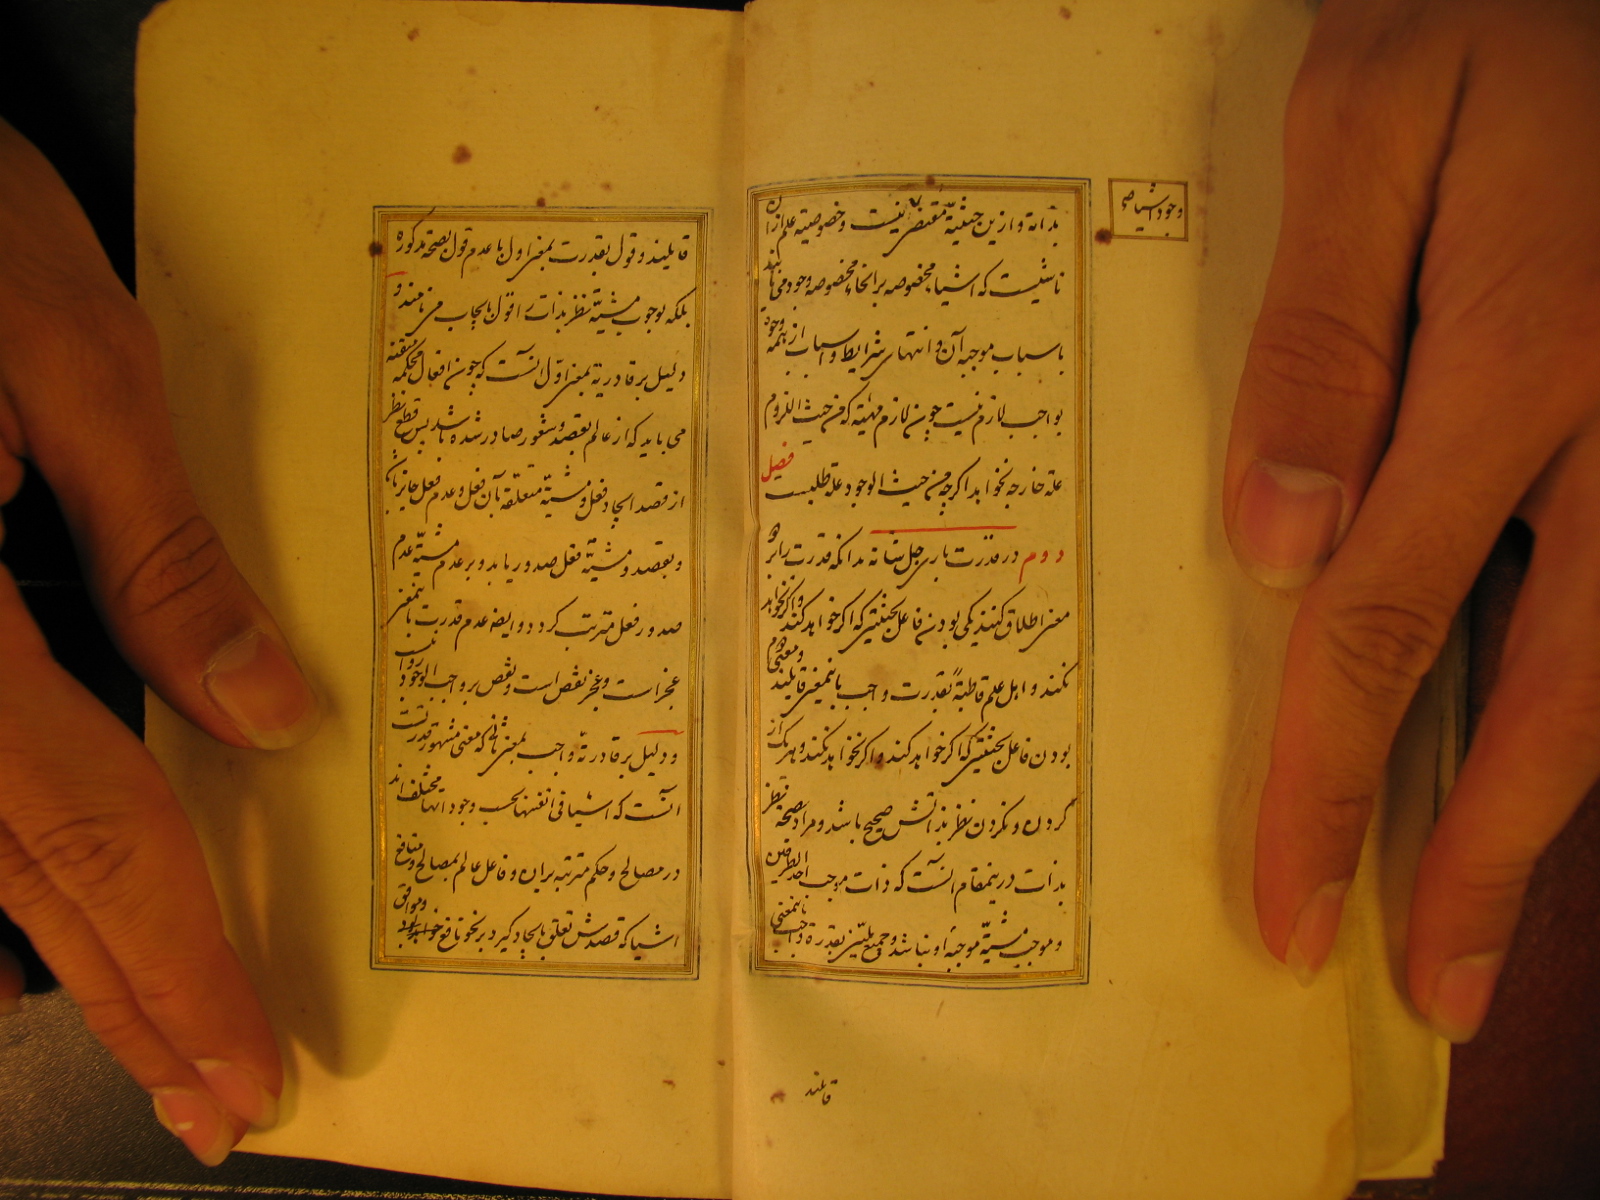 بذاته و ازین حیثیّه مقتضی نیست و خصوصیته علم ازان
ناشیست که اشیاء مخصوصه بر انحاء مخصوصه وجود می یابند
باسباب موجبه آن و انتهای شرایط و اسباب از همه وجود
بواجب لازم نیست چون لازم مهیّه که من حیث اللزوم
علة خارجه نخواهد اگرچه من حیث الوجود علة طلبست فصل
دوم در قدرت باری جل شانه بدانکه قدرت را بر دو
معنی اطلاق کنند یکی بودن فاعل بحیثیتی که اگر خواهد کند و اگر نخواهد
نکند و اهل علم قاطبةً بقدرت واجب باینمعنی قایلند و معنی دوم
بودن فاعل بحیثیتی که اگر خواهد کند و اگر نخواهد نکند و هر یک از
کردن و نکردن نظر بذاتش صحیح باشد و مراد بصحة نظر
بذات درینمقام آنست که ذات موجب احد الطرفین
و موجب مشیّة موجبه او نباشد و جمیع ملیّین بقدرة واجب باینمعنی
وجود اشیا
قایلند
قایلند و قول بقدرت بمعنی اول با عدم قول بصحة مذکوره
بلکه بوجوب مشیّة نظر بذات را قول بایجاب می نامند و
دلیل بر قادریة بمعنی اوّل آنست که چون افعال محکمه متقنه
می باید که از عالم بقصد و شعور صادر شده باشد پس قطع نظر
از قصد ایجاد فعل و مشیّة متعلقه بآن فعل و عدم فعل جایز باشد
و بقصد و مشیّة فعل صدور یابد و بر عدم مشیّة عدم
صدور فعل مترتب گردد و ایضا عدم قدرت باینمعنی
عجز است و عجز نقص است و نقص بر واجب الوجود روا نیست
و دلیل بر قادریّة واجب بمعنی ثانی که معنی مشهور قدرتست
آنست که اشیا فی انفسها بحسب وجود آنها مختلف اند
در مصالح و حکم مترتبه بران و فاعل عالم بمصالح و منافع
اشیا که قصدش تعلق بایجاد گیرد بر نحو نافع و موافق